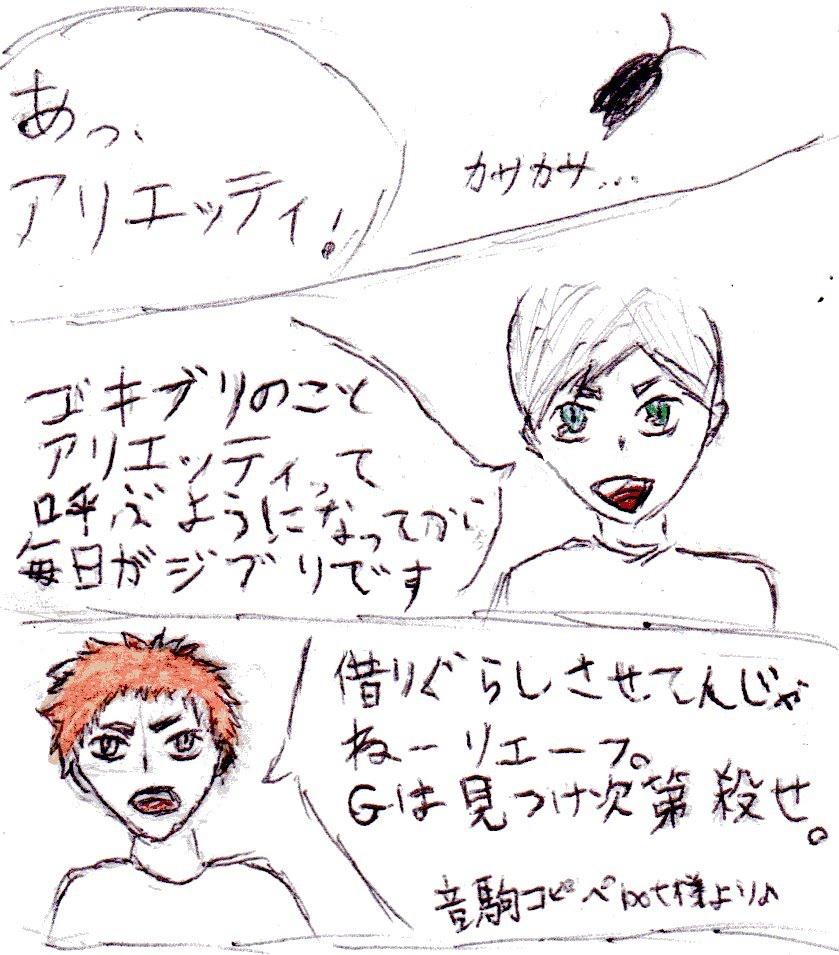 あっ、
アリエッティ!
カサカサ...
ゴキブリのこと
アリエッティって
呼ぶようになってから
毎日がジブリです
借りぐらしさせてんじゃ
ねーリエーフ。
Gは見つけ次第殺せ。
音駒コピペbot様より♪